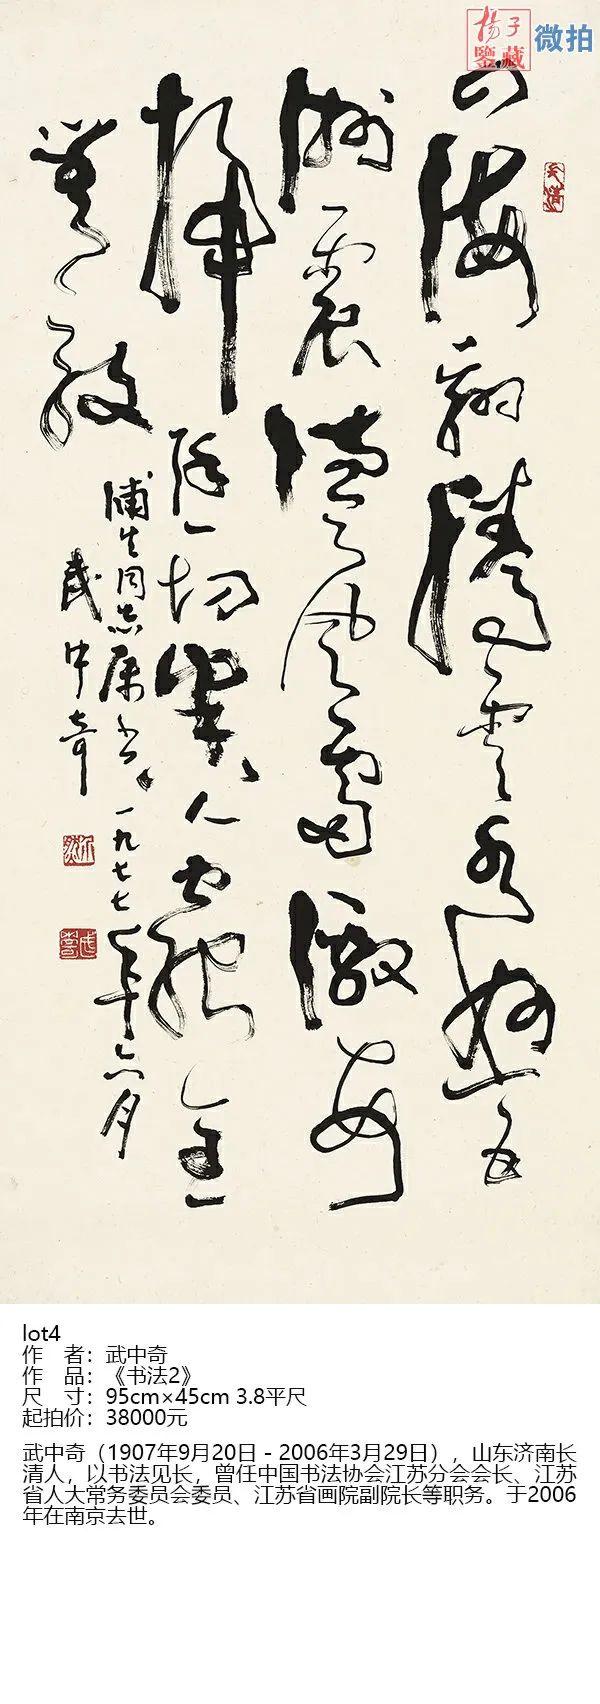 揚子
鑒藏
微拍
四海翻騰雲水怒五
洲震盪風雷激要
掃除一切害人蟲全
無敵
浦生同志属书一九七七年六月
武中奇
lot4
作 者：武中奇
作 品：《书法2》
尺 寸：95cm×45cm 3.8平尺
起拍价：38000元
武中奇（1907年9月20日 - 2006年3月29日），山东济南长
清人，以书法见长，曾任中国书法协会江苏分会会长、江苏
省人大常务委员会委员、江苏省画院副院长等职务。于2006
年在南京去世。